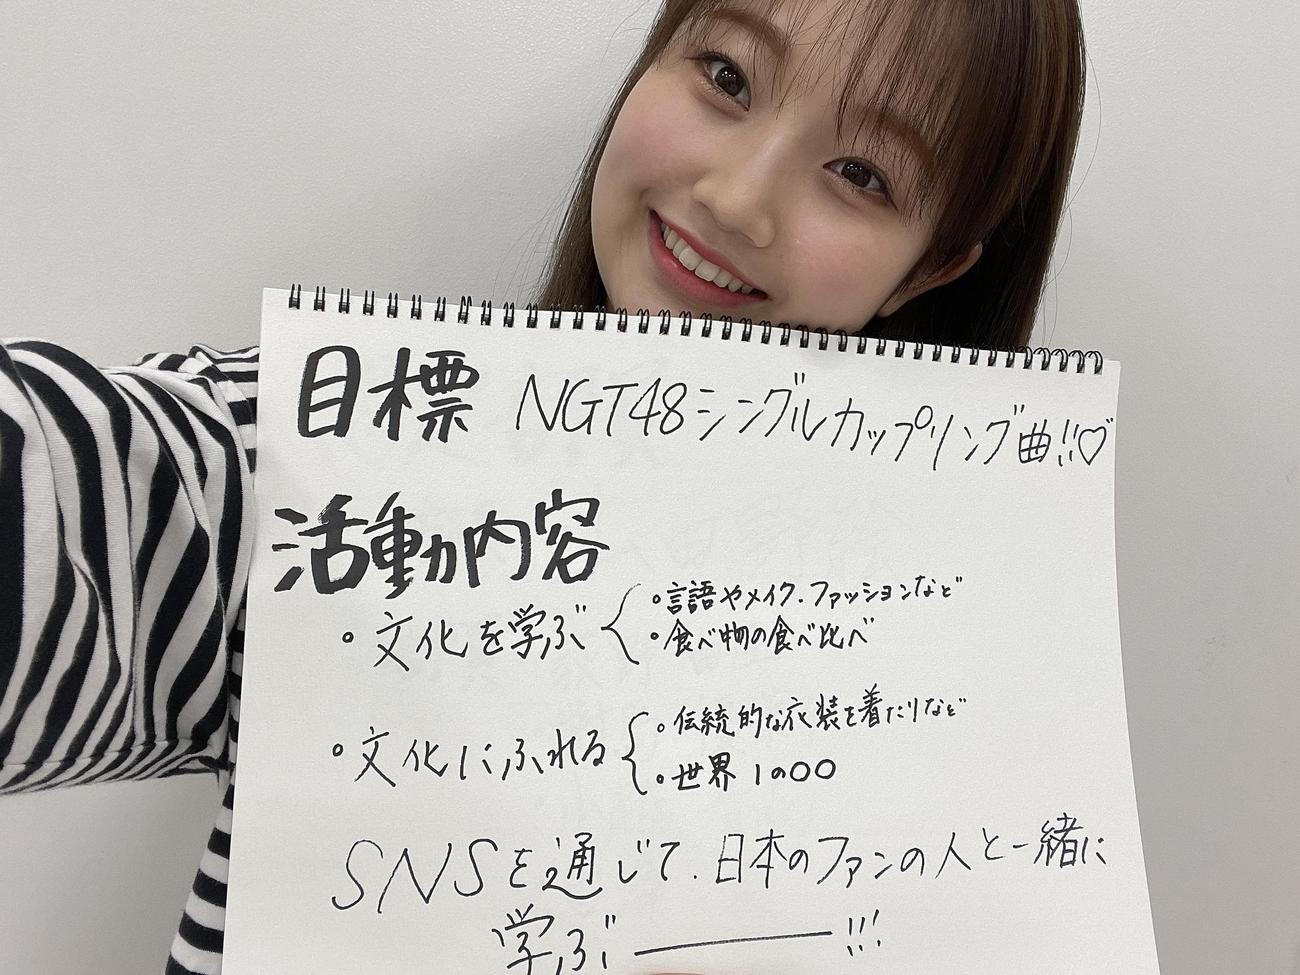 目標 NGT48シングルカップリング曲!!♡
活動内容
・文化を学ぶ
・言語やメイク.ファッションなど
・食べ物の食べ比べ
・文化にふれる
・伝統的な衣装を着たりなど
・世界1の○○
SNSを通じて.日本のファンの人と一緒に
学ぶ――!!!